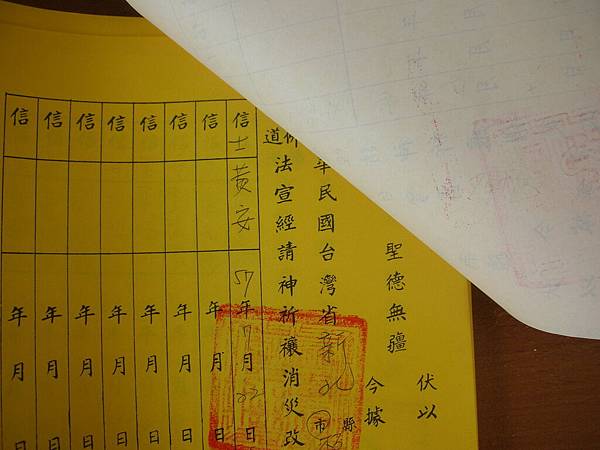 伏以
聖德無疆
今據
華民國台灣省新北市縣
道法宣經請神祈禳消災改
信士黃安 57年7月22日
信 年 月 日
信 年 月 日
信 年 月 日
信 年 月 日
信 年 月 日
信 年 月 日
信 年 月 日